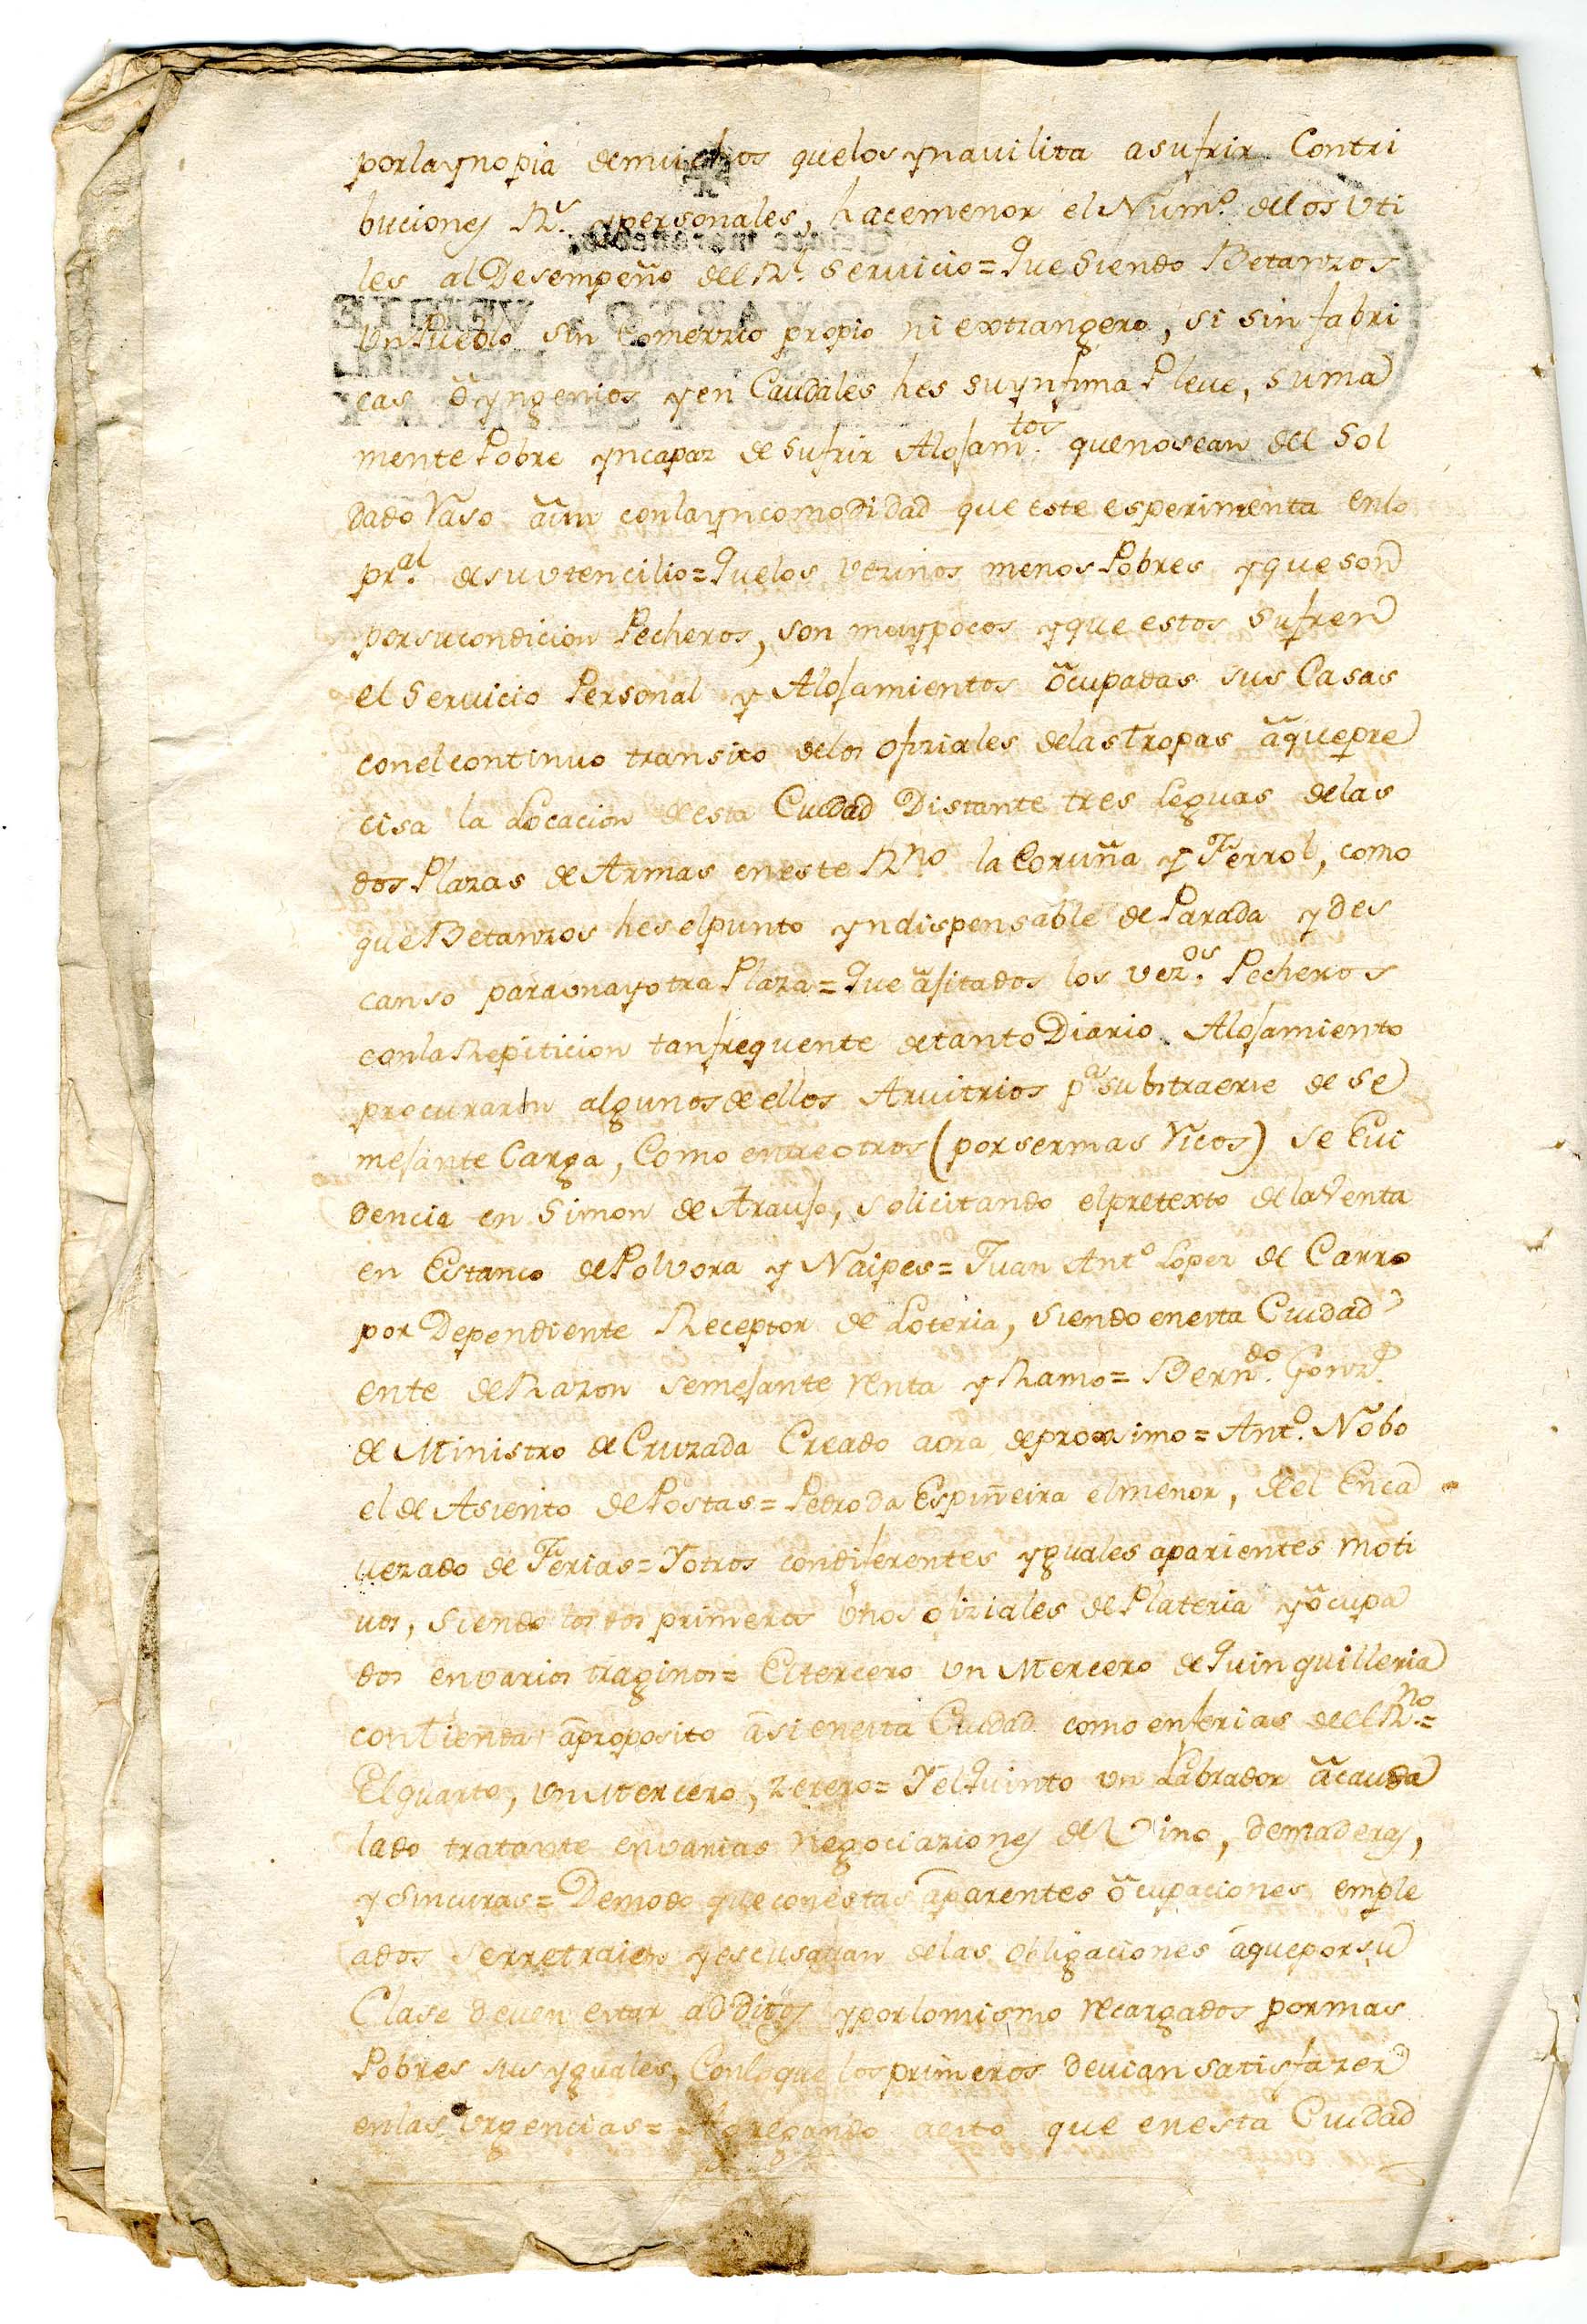 por la ynopia de muchos que los ynavilita a sufrir Contri
buciones R.^s y personales, hace menor el Num.^o de los Uti
les al Desempeño del R.^l Servicio = Que Siendo Betanzos
Un Pueblo sin Comerzio propio ni extrangero, si sin fabri
cas ô yngenios y en Caudales hes su ynfima Pleve, suma
mente Pobre yncapaz de sufrir Alojam.^tos que no sean del Sol
dado Vaso aun con la yncomodidad que este esperimenta en lo
pr.^al de su utencilio = Que los vezinos menos Pobres y que son
por su condicion Pecheros, son muy pocos y que estos sufren
el Servicio Personal y Alojamientos ôcupadas sus Casas
con el continuo transito de los ofiziales de las Tropas â que pre
cisa la Locacion de esta Ciudad Distante tres Leguas de las
dos Plazas de Armas en este R.^no la Coruña y Ferrol, como
que Betanzos hes el punto yndispensable de Parada y des
canso para una y otra Plaza = Que âjitados los vez.^os Pecheros
con la Repiticion tan frequente de tanto Diario Alojamiento
procuraron algunos de ellos Arvitrios p.^a subtraerse de se
mejante Carga, Como entre otros (por ser mas Ricos) se Evi
dencia en Simon de Araujo, solicitando el pretexto de la Venta
en Estanco de Polvora y Naipes = Juan Ant.^o Lopez de Carro
por Dependiente Receptor de Loteria, siendo en esta Ciudad
ente de Razon semejante renta y Ramo = Bern.^do Gonz.^z
de Ministro de Cruzada Creado aora de proximo = Ant.^o Nobo
el de Asiento de Postas = Pedro da Espiñeira el menor, de el Enca
vezado de Ferias = Y otros con diferentes yguales aparientes moti
vos, siendo los dos primeros ûnos ofiziales de Plateria y ôcupa
dos en varios traginos = El tercero un Mercero de Quinquilleria
con tienda âproposito âsi en esta Ciudad como en ferias de el R.^no =
El quarto, un Mercero, zerero = Y el Quinto un Labrador âcauda
lado tratante en varias negociaziones de Vino, de maderas,
y Sincuras = De modo que con estas aparentes ôcupaciones emple
ados se rretraien y escusavan de las obligaciones â que por su
Clase deven estar additos y por lo mismo recargados por mas
Pobres sus yguales, Con lo que los primeros devian satisfazer
en las Urgencias = Agregando a esto que en esta Ciudad